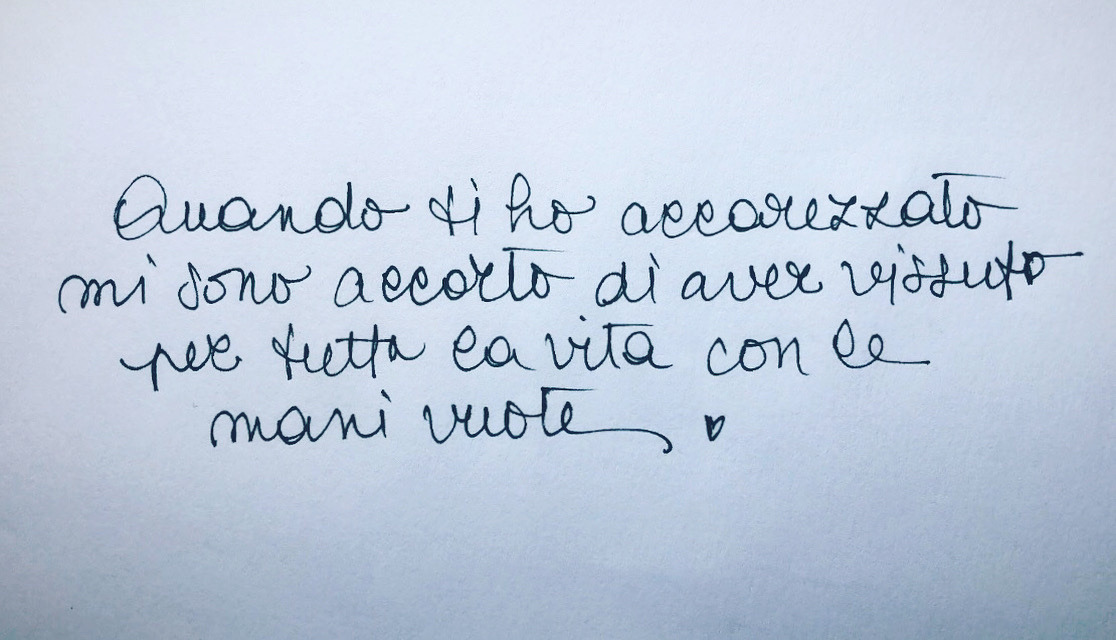 Quando ti ho accarezzato
mi sono accorto di aver vissuto
per tutta la vita con le
mani vuote ♥